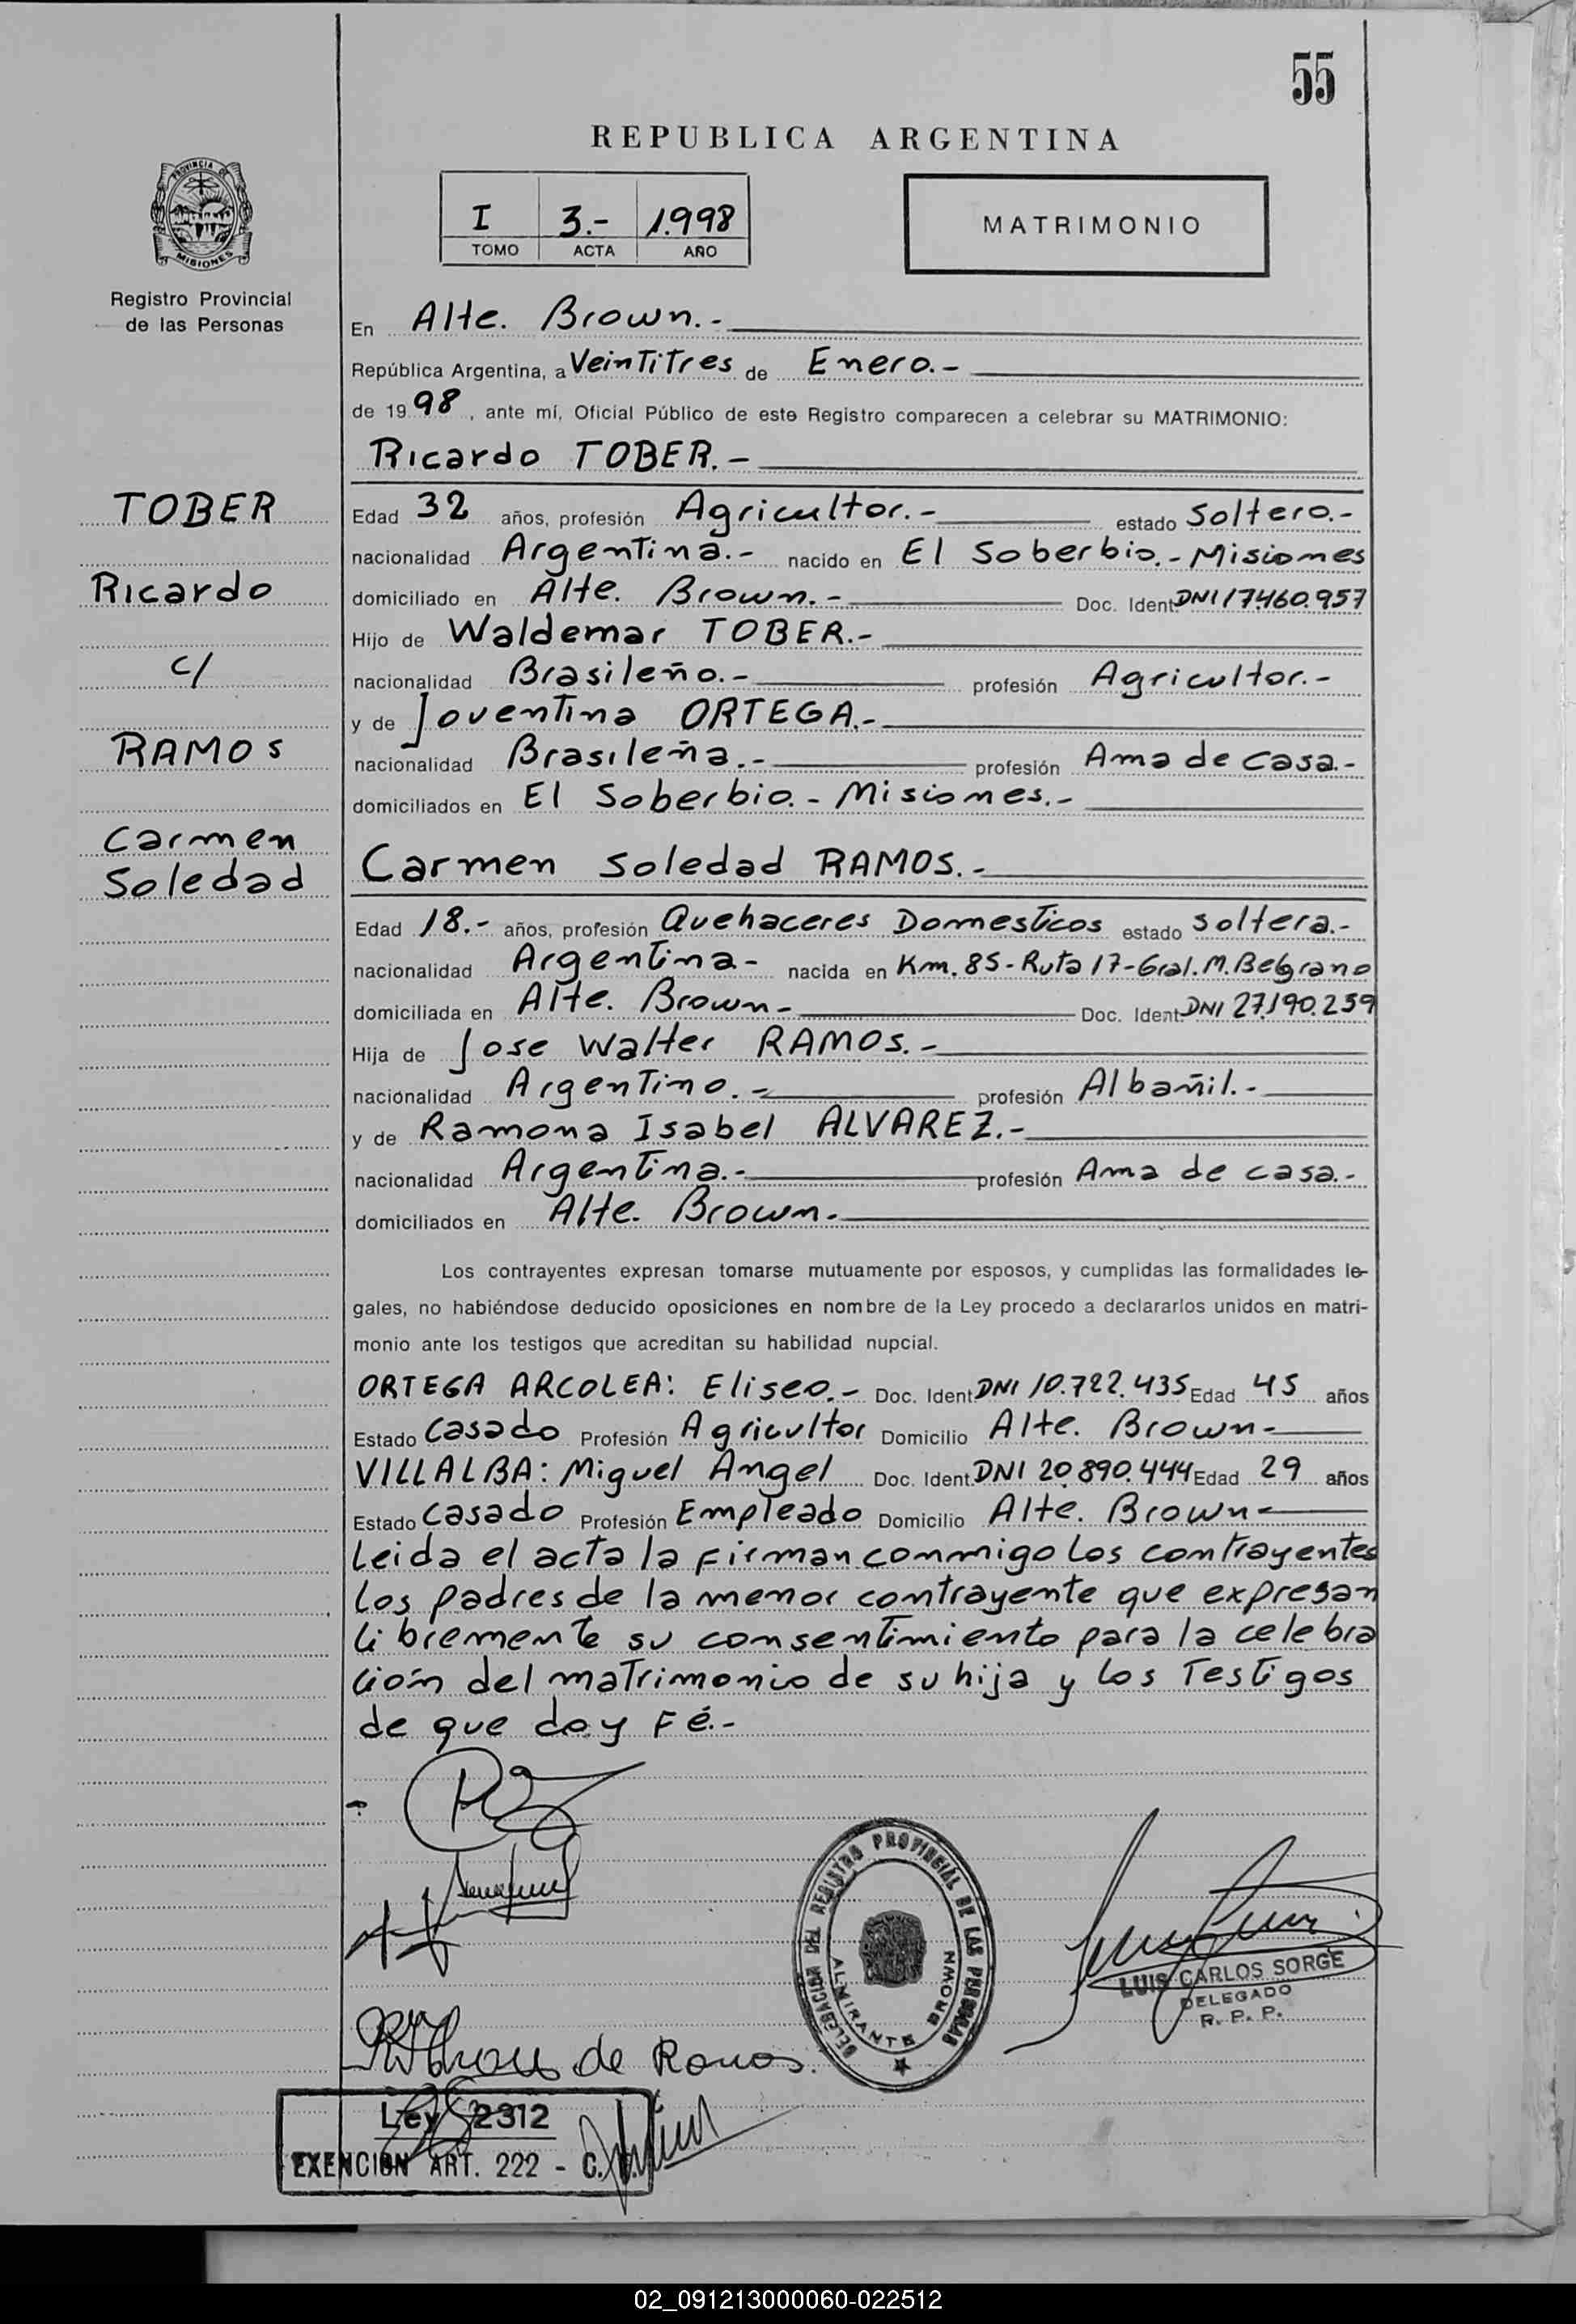 55
REPUBLICA ARGENTINA
PROVINCIA DE MISIONES
Registro Provincial
de las Personas
I 3.- 1.998
TOMO ACTA AÑO
MATRIMONIO
En Alte. Brown.-
República Argentina, a Veintitres de Enero.-
de 1998, ante mí, Oficial Público de este Registro comparecen a celebrar su MATRIMONIO:
Ricardo TOBER.-
TOBER
Ricardo
c/
RAMOS
Carmen
Soledad
Edad 32 años, profesión Agricultor.- estado Soltero.-
nacionalidad Argentina.- nacido en El Soberbio.- Misiones
domiciliado en Alte. Brown.- Doc. Ident. DNI 17.460.957
Hijo de Waldemar TOBER.-
nacionalidad Brasileño.- profesión Agricultor.-
y de Joventina ORTEGA.-
nacionalidad Brasileña.- profesión Ama de casa.-
domiciliados en El Soberbio.- Misiones.-
Carmen Soledad RAMOS.-
Edad 18.- años, profesión Quehaceres Domesticos estado soltera.-
nacionalidad Argentina- nacida en Km. 85-Ruta 17-Gral. M. Belgrano
domiciliada en Alte. Brown- Doc. Ident. DNI 27.190.259
Hija de Jose Walter RAMOS.-
nacionalidad Argentino.- profesión Albañil.-
y de Ramona Isabel ALVAREZ.-
nacionalidad Argentina.- profesión Ama de casa.-
domiciliados en Alte. Brown.
Los contrayentes expresan tomarse mutuamente por esposos, y cumplidas las formalidades le-
gales, no habiéndose deducido oposiciones en nombre de la Ley procedo a declararlos unidos en matri-
monio ante los testigos que acreditan su habilidad nupcial.
ORTEGA ARCOLEA: Eliseo.- Doc. Ident. DNI 10.722.435 Edad 45 años
Estado Casado Profesión Agricultor Domicilio Alte. Brown-
VILLALBA: Miguel Angel Doc. Ident. DNI 20.890.444 Edad 29 años
Estado Casado Profesión Empleado Domicilio Alte. Brown-
Leida el acta la firman conmmigo los contrayentes
los padres de la menor contrayente que expresan
libremente su consentimiento para la celebra
ción del matrimonio de su hija y los Testigos
de que doy Fé.-
DELEGACION DEL REGISTRO PROVINCIAL DE LAS PERSONAS
ALMIRANTE BROWN
LUIS CARLOS SORGE
DELEGADO
R. P. P.
de Ramos.
Ley 2312
EXENCION ART. 222 - C.
02_091213000060-022512